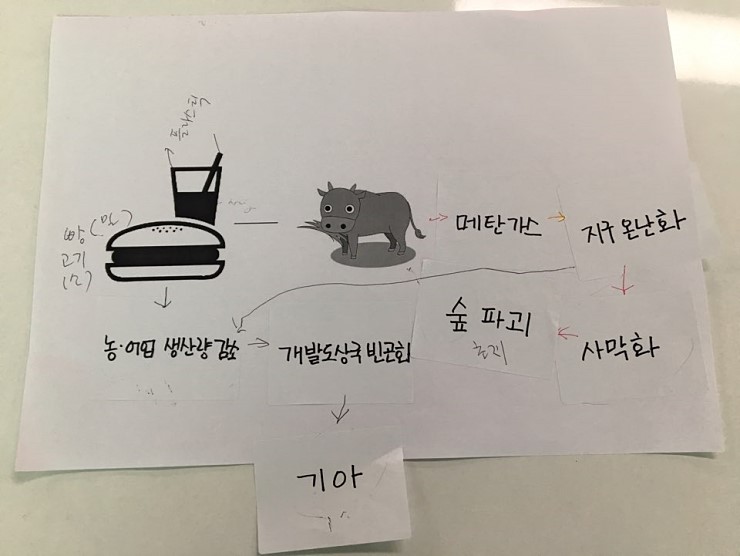 빵 (밀)
고기
(소)
메탄가스
지구 온난화
농·어업 생산량 감소
개발도상국 빈곤화
숲 파괴
사막화
기아